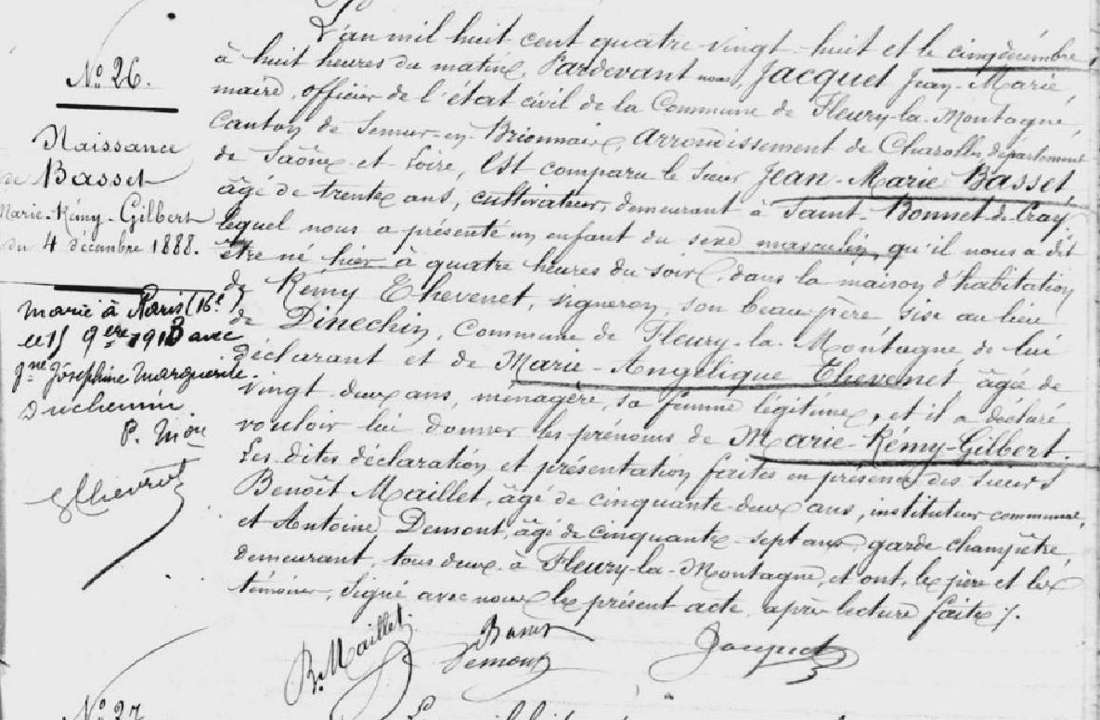 N° 26.
Naissance
de Basset
Marie-Rémy-Gilbert
du 4 décembre 1888.
Marié à Paris (16e)
le 15 9bre 1913 avec
Jne Joséphine Marguerite
Duchemin
L'an mil huit cent quatre-vingt-huit et le cinq décembre,
à huit heures du matin, Pardevant nous, Jacquet Jean-Marie,
maire, officier de l'état civil de la Commune de Fleury-la-Montagne,
Canton de Semur-en-Brionnais, Arrondissement de Charolles, département
de Saône-et-Loire, Est comparu le sieur Jean-Marie Basset,
âgé de trente ans, cultivateur, demeurant à Saint-Bonnet de Cray
lequel nous a présenté un enfant du sexe masculin, qu'il nous a dit
être né hier à quatre heures du soir, dans la maison d'habitation
de Rémy Thevenet, vigneron, son beau-père sise au lieu
de Dinechin, Commune de Fleury-la-Montagne de lui
déclarant et de Marie-Angélique Thevenet, âgée de
vingt-deux ans, ménagère, sa femme légitime, et il a déclaré
vouloir lui donner les prénoms de Marie-Rémy-Gilbert.
Les dites déclaration et présentation faites en présence des sieurs
Benoît Maillet, âgé de cinquante-deux ans, instituteur communal,
et Antoine Demont, âgé de cinquante-sept ans, garde champêtre
demeurant tous deux à Fleury-la-Montagne, et ont, le père et les
témoins, signé avec nous le présent acte après lecture faite.
B. Maillet
Basset
Demont
Jacquet
N° 27